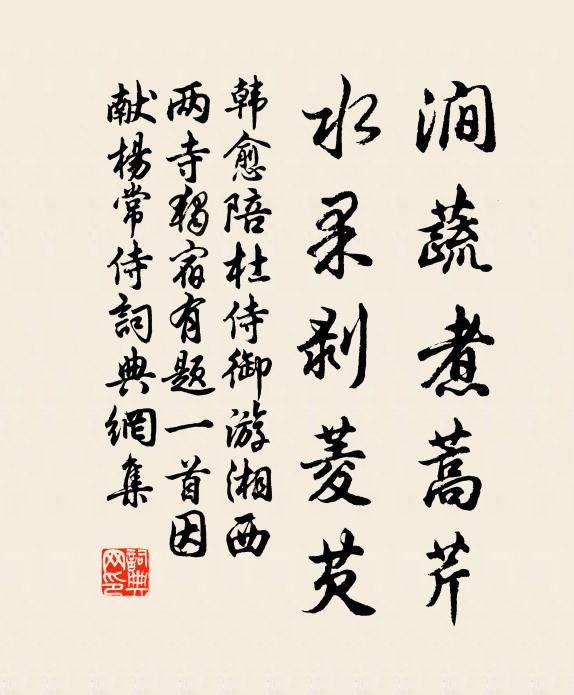 涧蔬煮蒿芹
水果剥菱芡
韩愈陪杜侍御游湘西
两寺独宿有题一首因
献杨常侍詞典網集
詞典网印